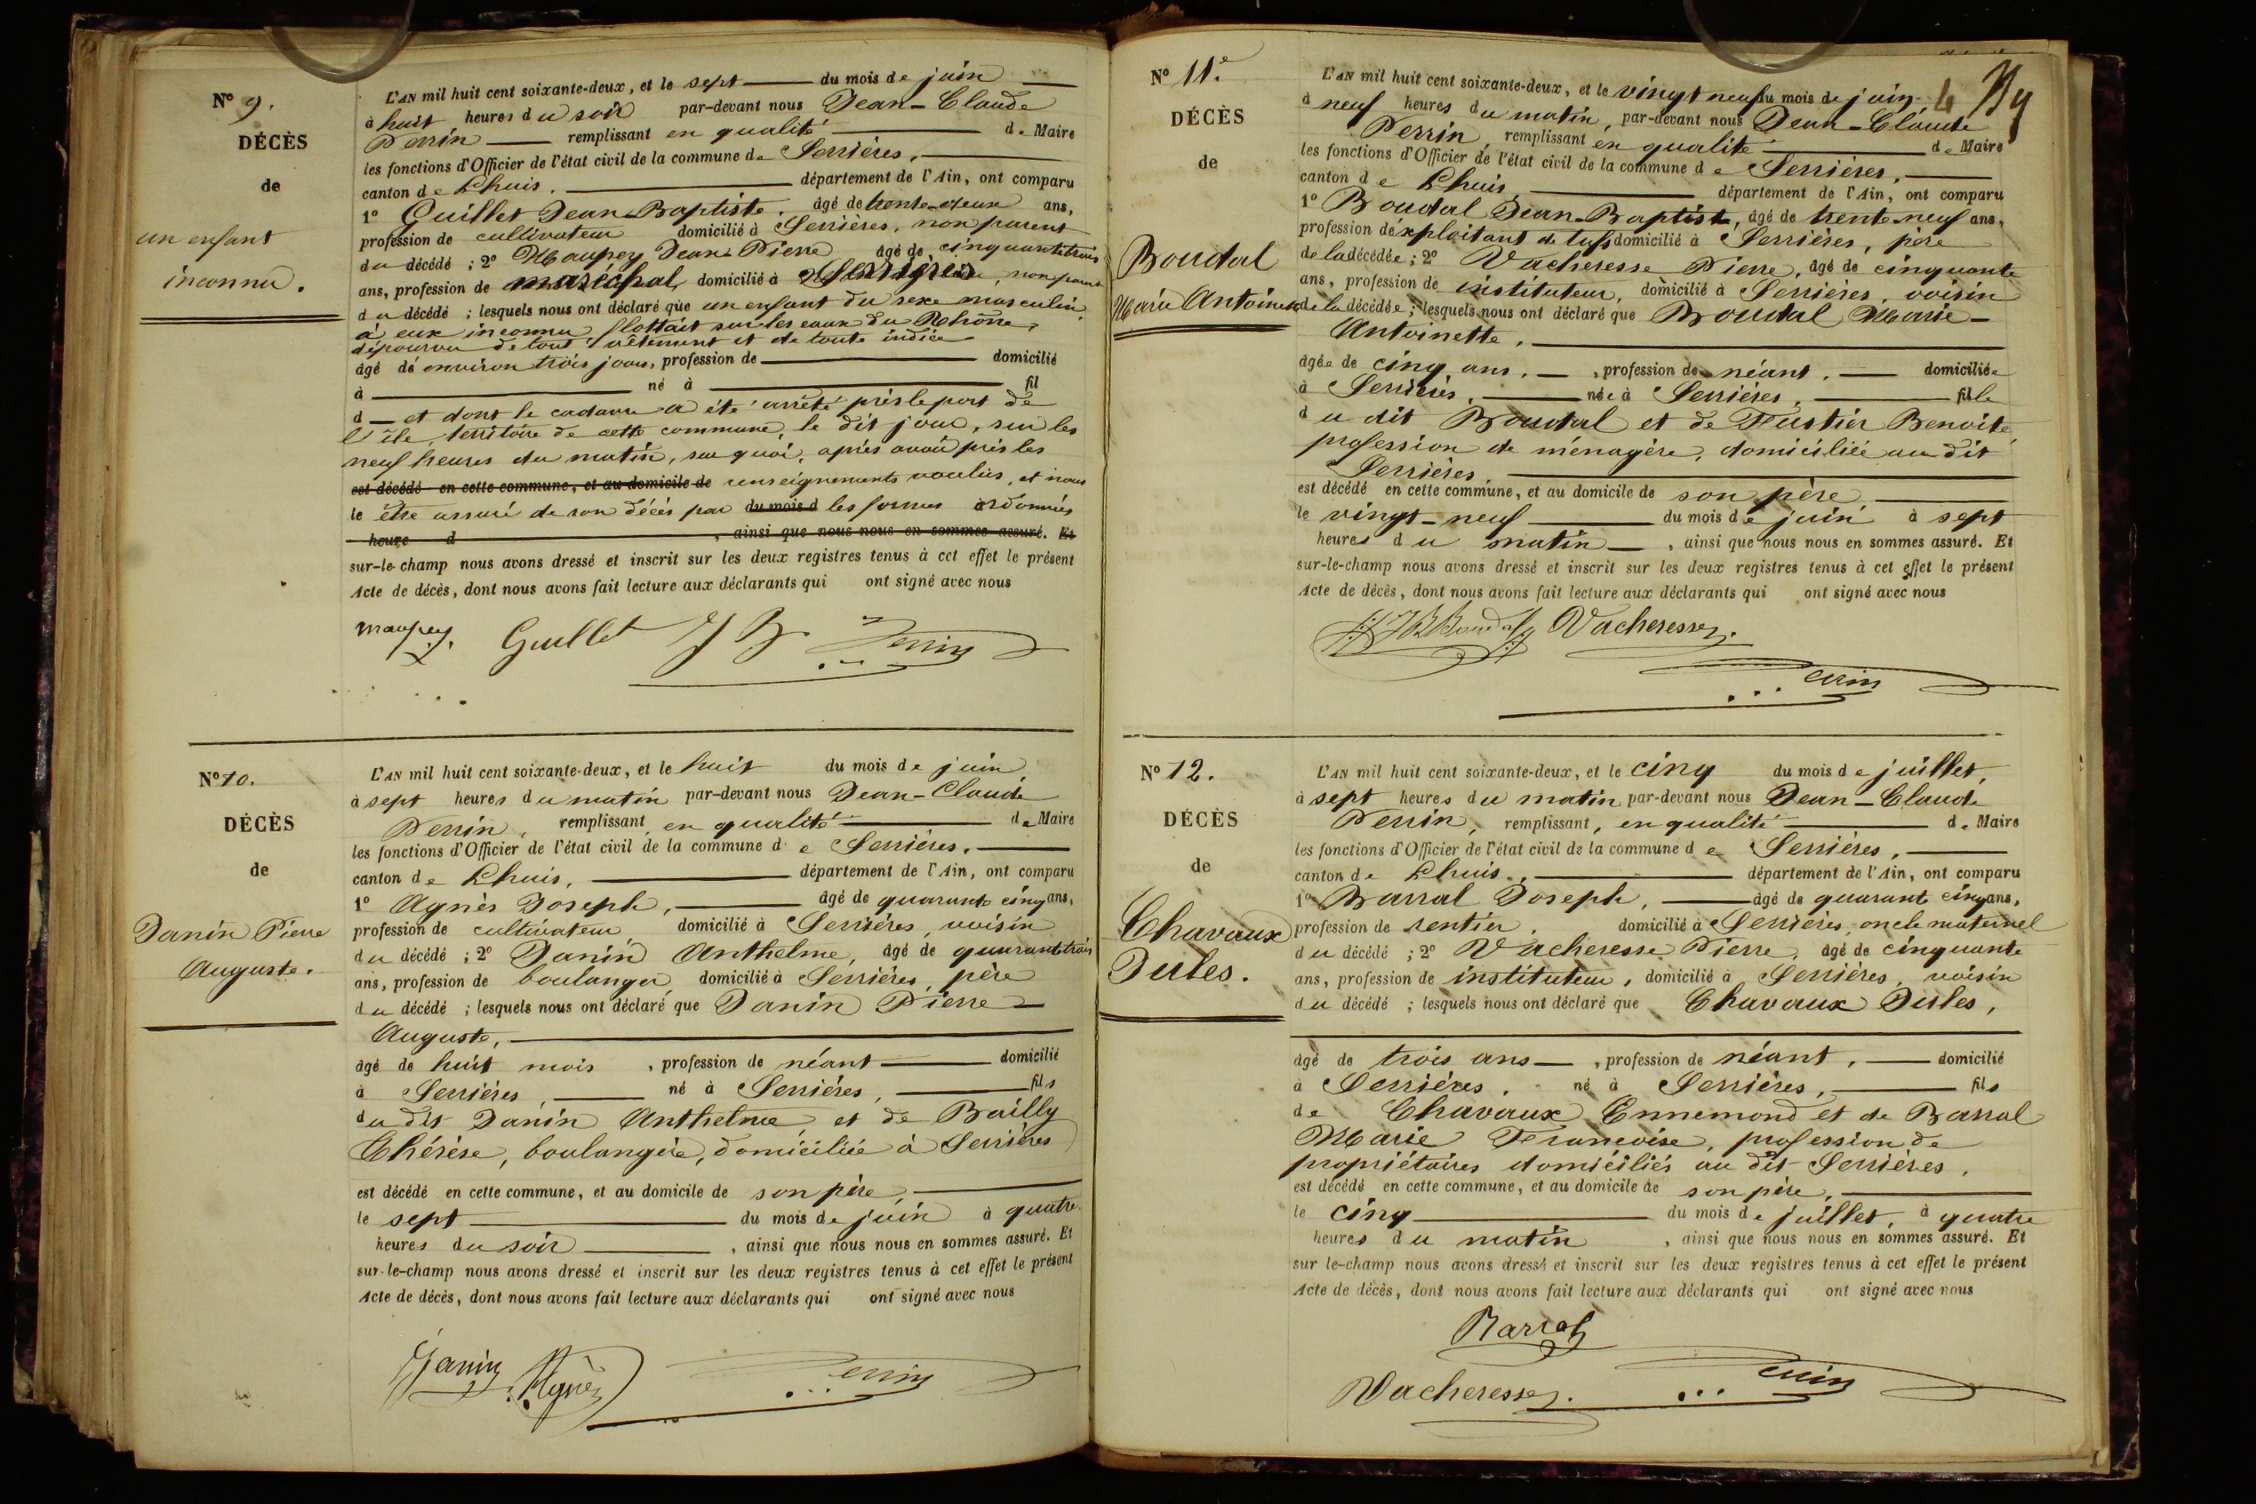 N° 9.
DÉCÈS
de
un enfant
inconnu.
L'AN mil huit cent soixante-deux, et le sept du mois de juin
à huit heures du soir par-devant nous Jean-Claude
Perrin remplissant en qualité de Maire
les fonctions d'Officier de l'état civil de la commune de Serrières,
canton de Lhuis, département de l'Ain, ont comparu
1° Guillet Jean-Baptiste, âgé de trente-deux ans,
profession de cultivateur domicilié à Serrières, non parent
du décédé ; 2° Maupey Jean-Pierre âgé de cinquante-trois
ans, profession de maréchal, domicilié à Serrières, non parent
du décédé ; lesquels nous ont déclaré que un enfant du sexe masculin
à eux inconnu flottait sur les eaux du Rhône,
dépourvu de tout vêtement et de toute indice
âgé de environ trois jours, profession de domicilié
à né à fil
d et dont le cadavre a été arrêté près le port de
l'île, territoire de cette commune, le dit jour, sur les
neuf heures du matin, sur quoi, après avoir pris les
est décédé en cette commune, et au domicile de renseignements voulus, et nous
le être assuré de son décès par du mois d les formes ordonnées
heure d , ainsi que nous nous en sommes assuré. Et
sur-le-champ nous avons dressé et inscrit sur les deux registres tenus à cet effet le présent
Acte de décès, dont nous avons fait lecture aux déclarants qui ont signé avec nous
Maupey. Guillet J B Perrin
N° 10.
DÉCÈS
de
Janin Pierre
Auguste.
L'AN mil huit cent soixante-deux, et le huit du mois de juin,
à sept heures du matin par-devant nous Jean-Claude
Perrin, remplissant en qualité de Maire
les fonctions d'Officier de l'état civil de la commune de Serrières,
canton de Lhuis, département de l'Ain, ont comparu
1° Agnès Joseph, âgé de quarante cinq ans,
profession de cultivateur domicilié à Serrières, voisin
du décédé ; 2° Janin Anthelme, âgé de quarante-trois
ans, profession de boulanger, domicilié à Serrières, père
du décédé ; lesquels nous ont déclaré que Janin Pierre
Auguste,
âgé de huit mois, profession de néant domicilié
à Serrières, né à Serrières, fils
du dit Janin Anthelme et de Bailly
Thérèse, boulangère, domiciliée à Serrières
est décédé en cette commune, et au domicile de son père,
le sept du mois de juin à quatre
heures du soir , ainsi que nous nous en sommes assuré. Et
sur-le-champ nous avons dressé et inscrit sur les deux registres tenus à cet effet le présent
Acte de décès, dont nous avons fait lecture aux déclarants qui ont signé avec nous
Janin Agnès Perrin
N° 11.e
DÉCÈS
de
Boudal
Marie Antoinette
L'AN mil huit cent soixante-deux, et le vingt neuf du mois de juin 4
à neuf heures du matin, par-devant nous Jean-Claude
Perrin, remplissant en qualité de Maire
les fonctions d'Officier de l'état civil de la commune de Serrières,
canton de Lhuis, département de l'Ain, ont comparu
1° Boudal Jean-Baptiste, âgé de trente neuf ans,
profession dexploitant de tufs domicilié à Serrières, père
de la décédée ; 2° Vacheresse Pierre, âgé de cinquante
ans, profession de instituteur, domicilié à Serrières, voisin
de la décédée ; lesquels nous ont déclaré que Boudal Marie-
Antoinette,
âgée de cinq ans, profession de néant, domiciliée
à Serrières, née à Serrières, fille
du dit Boudal et de Fustier Benoite
profession de ménagère, domiciliée au dit
Serrières
est décédé en cette commune, et au domicile de son père
le vingt-neuf du mois de juin à sept
heures du matin , ainsi que nous nous en sommes assuré. Et
sur-le-champ nous avons dressé et inscrit sur les deux registres tenus à cet effet le présent
Acte de décès, dont nous avons fait lecture aux déclarants qui ont signé avec nous
J B Boudal Vacheresse.
Perrin
N° 12.
DÉCÈS
de
Chavaux
Jules.
L'AN mil huit cent soixante-deux, et le cinq du mois de juillet,
à sept heures du matin par-devant nous Jean-Claude
Perrin, remplissant, en qualité de Maire
les fonctions d'Officier de l'état civil de la commune de Serrières,
canton de Lhuis, département de l'Ain, ont comparu
1° Barral Joseph, âgé de quarante cinq ans,
profession de rentier, domicilié à Serrières, oncle maternel
du décédé ; 2° Vacheresse Pierre, âgé de cinquante
ans, profession de instituteur, domicilié à Serrières, voisin
du décédé ; lesquels nous ont déclaré que Chavaux Jules,
âgé de trois ans, profession de néant, domicilié
à Serrières, né à Serrières, fils
de Chavaux Ennemond et de Barral
Marie Françoise, profession de
propriétaires domiciliés au dit Serrières,
est décédé en cette commune, et au domicile de son père,
le cinq du mois de juillet, à quatre
heures du matin , ainsi que nous nous en sommes assuré. Et
sur le-champ nous avons dressé et inscrit sur les deux registres tenus à cet effet le présent
Acte de décès, dont nous avons fait lecture aux déclarants qui ont signé avec nous
Barral
Vacheresse. Perrin